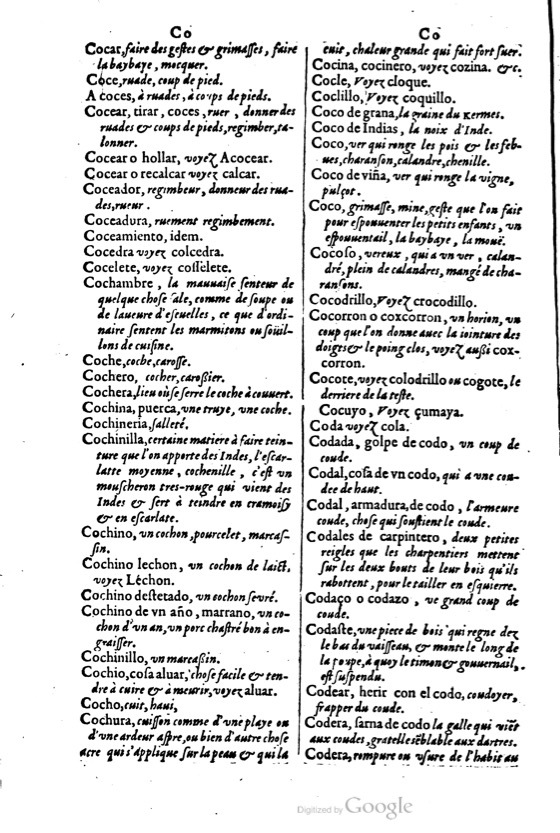 Co
Cocar, faire des gestes & grimasses, faire
la baybaye, mocquer.
Coce, ruade, coup de pied.
A coces, à ruades, à coups de pieds.
Cocear, tirar, coces, ruer, donner des
ruades & coups de pieds, regimber, ta-
lonner.
Cocear o hollar, voyez Acocear.
Cocear o recalcar voyez calcar.
Coceador, regimbeur, donneur des rua-
des, rueur.
Coceadura, ruement regimbement.
Coceamiento, idem.
Cocedra voyez colcedra.
Cocelete, voyez cosselete.
Cochambre, la mauuaise senteur de
quelque chose sale, comme de soupe ou
de laueure d'escuelles, ce que d'ordi-
naire sentent les marmitons ou souil-
lons de cuisine.
Coche, coche, carosse.
Cochero, cocher, carossier.
Cochera, lieu où se serre le coche à couuert.
Cochina, puerca, vne truye, vne coche.
Cochineria, salleté.
Cochinilla, certaine matiere à faire tein-
ture que l'on apporte des Indes, l'escar-
latte moyenne, cochenille, c'est vn
moucheron tres-rouge qui vient des
Indes & sert à teindre en cramoisy
& en escarlate.
Cochino, vn cochon, pourcelet, marcas-
sin.
Cochino lechon, vn cochon de laict,
voyez Léchon.
Cochino destetado, vn cochon seuré.
Cochino de vn año, marrano, vn co-
chon d'vn an, vn porc chastré bon à en-
graisser.
Cochinillo, vn marcassin.
Cochio, cosa aluar, chose facile & ten-
dre à cuire & à meurir, voyez aluar.
Cocho, cuit, haui,
Cochura, cuisson comme d'vne playe ou
d'vne ardeur aspre, ou bien d'autre chose
acre qui s'applique sur la peau & qui la
Co
cuit, chaleur grande qui fait fort suer.
Cocina, cocinero, voyez cozina. &c.
Cocle, Voyez cloque.
Coclillo, Voyez coquillo.
Coco de grana, la graine du kermes.
Coco de Indias, la noix d'Inde.
Coco, ver qui ronge les pois & les feb-
ues, charanson, calandre, chenille.
Coco de viña, ver qui ronge la vigne,
pulçot.
Coco, grimasse, mine, geste que l'on fait
pour espouuenter les petits enfants, vn
espouuentail, la baybaye, la mouë.
Cocoso, vereux, qui a vn ver, calan-
dré, plein de calandres, mangé de cha-
ransons.
Cocodrillo, Voyez crocodillo.
Cocorron o coxcorron, vn horion, vn
coup que l'on donne auec la iointure des
doigts & le poing clos, voyez aussi cox-
corron.
Cocote, voyez colodrillo ou cogote, le
derriere de la teste.
Cocuyo, Voyez çumaya.
Coda voyez cola.
Codada, golpe de codo, vn coup de
coude.
Codal, cosa de vn codo, qui a vne cou-
dee de haut.
Codal, armadura de codo, l'armeure
coude, chose qui soustient le coude.
Codales de carpintero, deux petites
reigles que les charpentiers mettent
sur les deux bouts de leur bois qu'ils
rabottent, pour le tailler en esquierre.
Codaço o codazo, ve grand coup de
coude.
Codaste, vne piece de bois qui regne dez
le bas du vaisseau, & monte le long de
la poupe, à quoy le timon & gouuernail,
est suspendu.
Codear, herir con el codo, coudoyer,
frapper du coude.
Codera, sarna de codo la galle qui vièt
aux coudes, gratelle séblable aux dartres.
Codera, rompure ou vsure de l'habit au
Digitized by Google